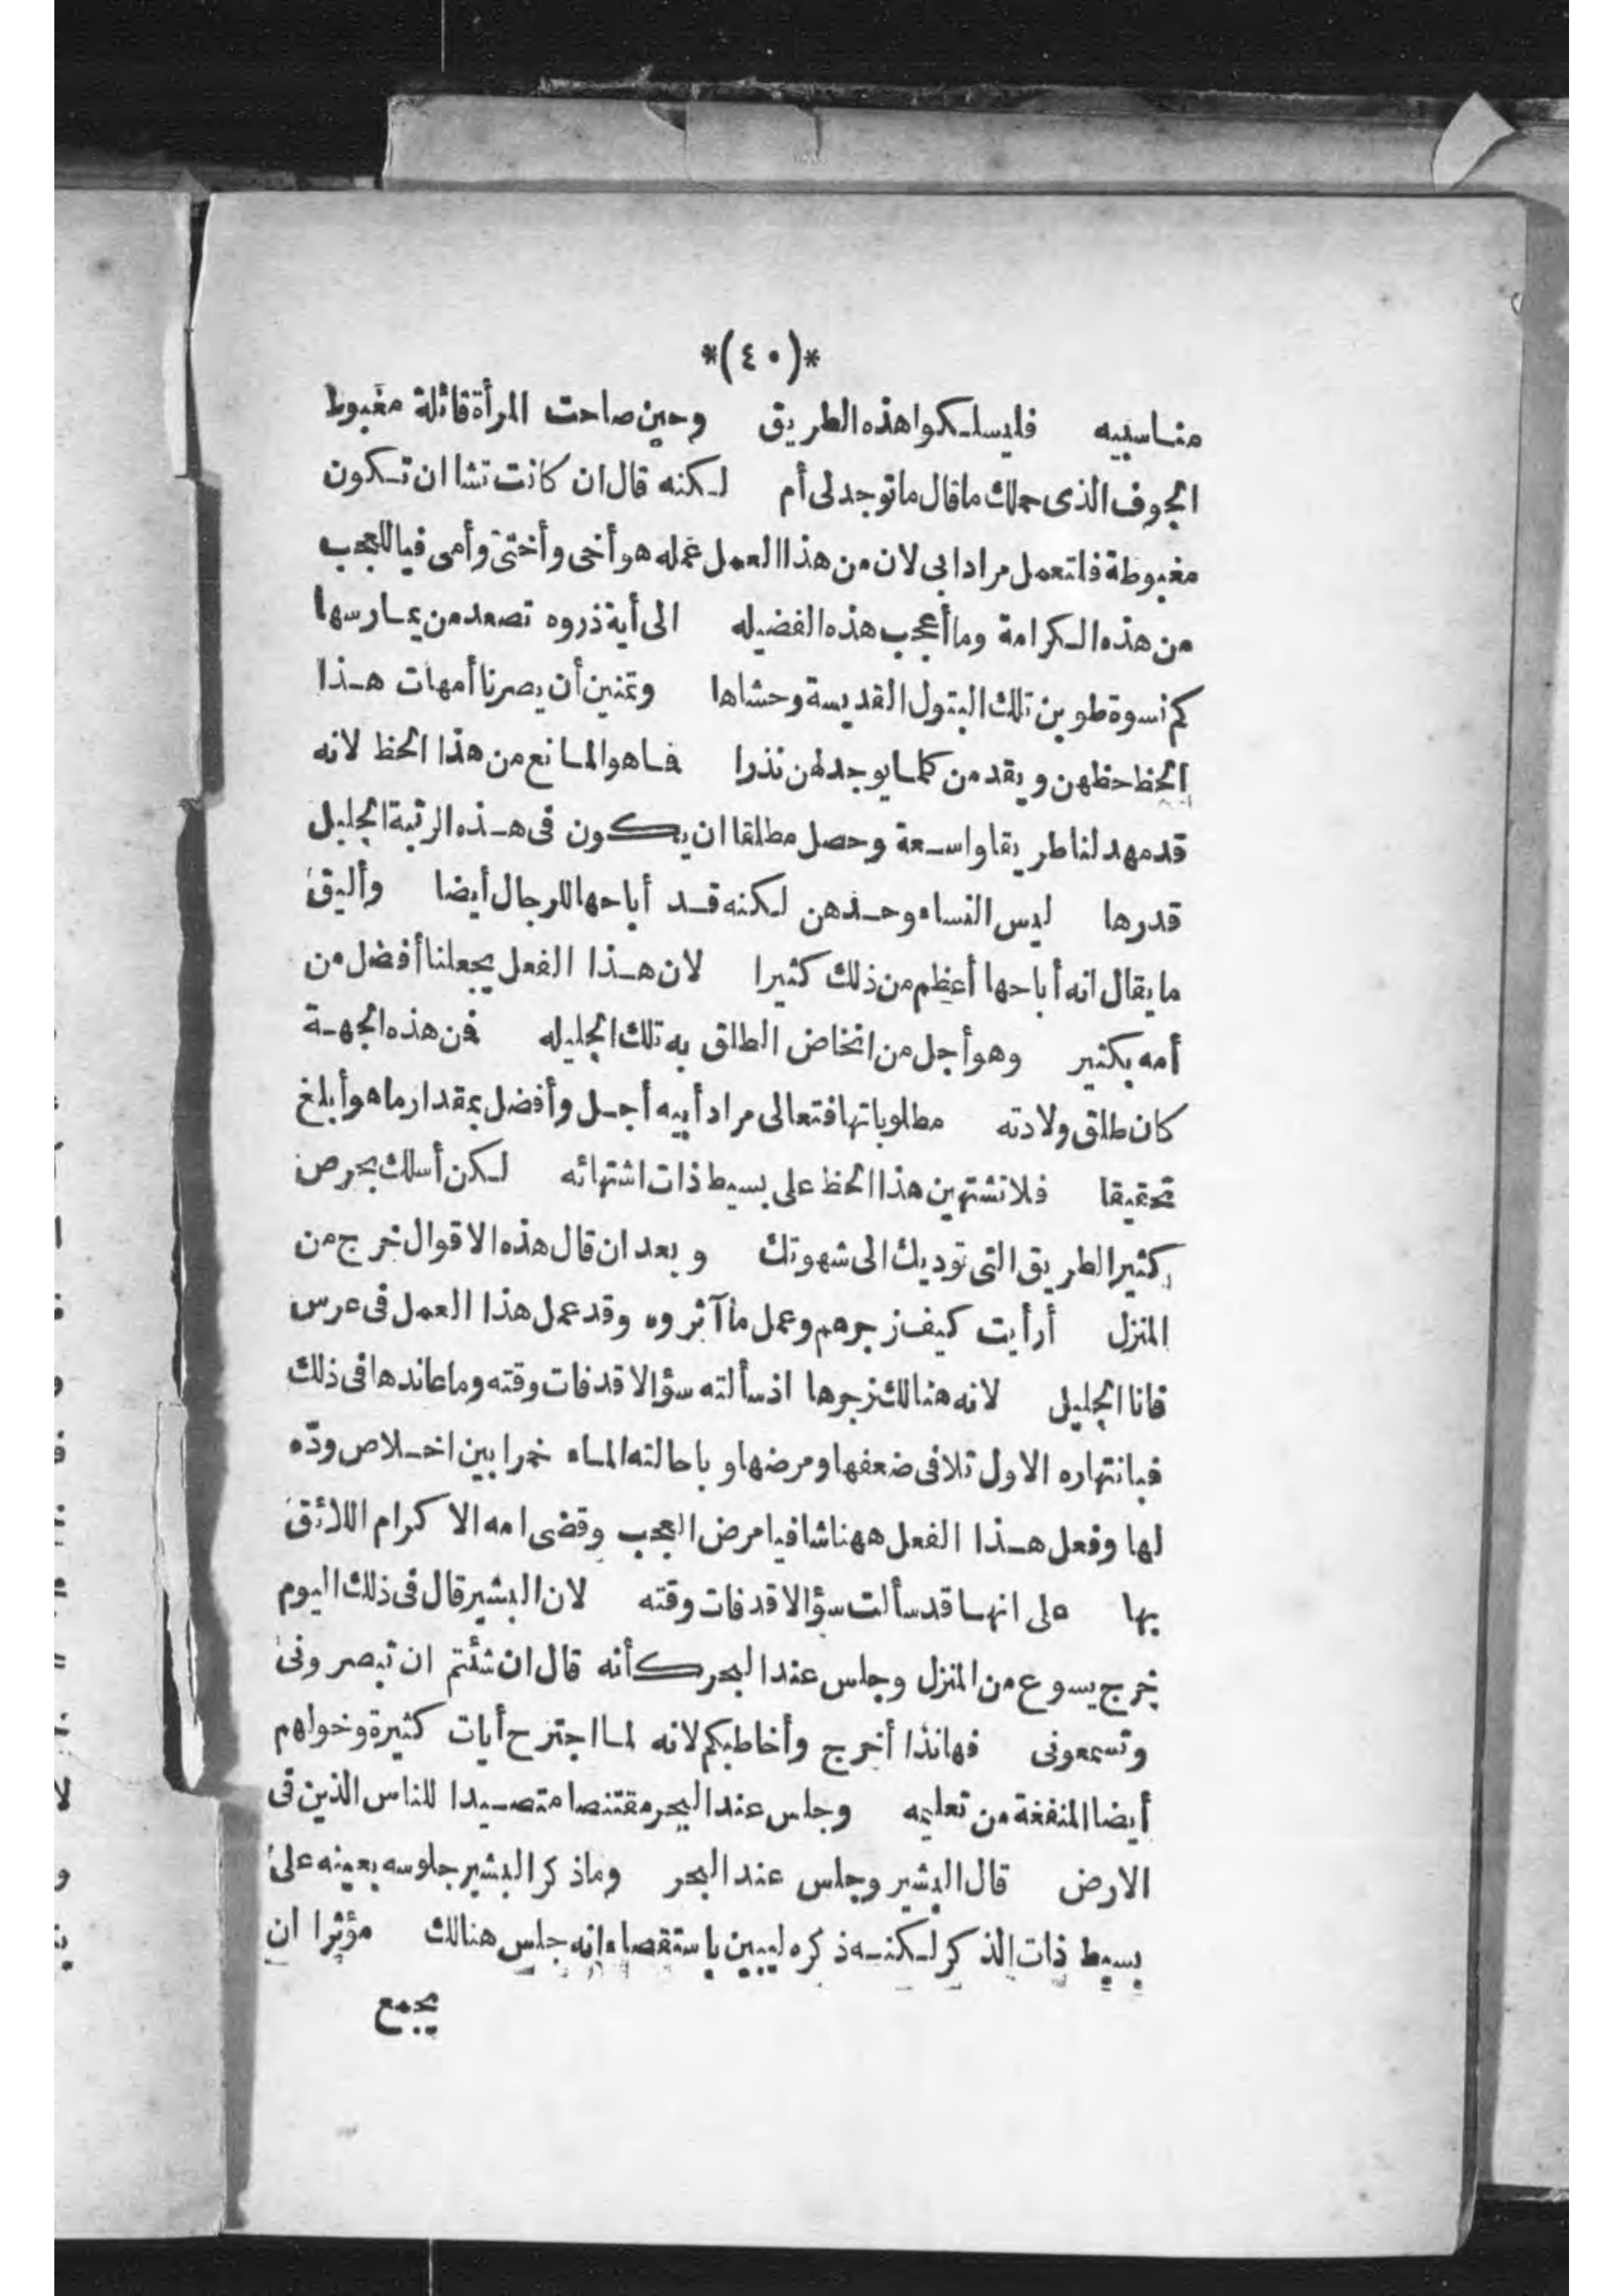 *(٤٠)*
مناسبيه فليسلكوا هذه الطريق وحين صاحت المرأة قائلة مغبوط
الجوف الذى حملك ما قال ما توجد لى أم لكنه قال ان كانت تشا ان تكون
مغبوطة فلتعمل مراد ابى لان من هذا العمل عمله هو أخى وأختى وأمى فيا للعجب
من هذه الكرامة وما أعجب هذه الفضيله الى أية ذروه تصعد من يمارسها
كم نسوة طوبن تلك البتول القديسة وحشاها وتمنين أن يصرنا أمهات هذا
الحظ حظهن ويقدمن كلما يوجد لهن نذرا فما هو المانع من هذا الحظ لانه
قد مهد لنا طريقا واسعة وحصل مطلقا ان يكون فى هذه الرتبة الجليل
قدرها ليس النساء وحدهن لكنه قد أباحها للرجال أيضا وأليق
ما يقال انه أباحها أعظم من ذلك كثيرا لان هذا الفعل يجعلنا أفضل من
أمه بكثير وهو أجل من انخاض الطلق به تلك الجليله فمن هذه الجهة
كان طلق ولادته مطلوباتها فتعالى مراد أبيه أجل وأفضل بمقدار ما هو أبلغ
تحقيقا فلا تشتهين هذا الحظ على بسيط ذات اشتهائه لكن أسلك بحرص
كثير الطريق التى توديك الى شهوتك وبعد ان قال هذه الاقوال خرج من
المنزل أرأيت كيف زجرهم وعمل ما آثروه وقد عمل هذا العمل فى عرس
قانا الجليل لانه هنالك زجرها اذ سألته سؤالا قد فات وقته وما عاندها فى ذلك
فبانتهاره الاول تلافى ضعفها ومرضها وباحالته الماء خمرا بين اخلاص ودّه
لها وفعل هذا الفعل ههنا شافيا مرض العجب وقضى امه الاكرام اللائق
بها على انها قد سألت سؤالا قد فات وقته لان البشير قال فى ذلك اليوم
خرج يسوع من المنزل وجلس عند البحر كأنه قال ان شئتم ان تبصرونى
وتسمعونى فهانذا أخرج وأخاطبكم لانه لما اجترح أيات كثيرة وخولهم
أيضا المنفغة من تعليمه وجلس عند البحر مقتنصا متصيدا للناس الذين فى
الارض قال البشير وجلس عند البحر وما ذكر البشير جلوسه بعينه على
بسيط ذات الذكر لكنه ذكره ليبين باستقصاء انه جلس هنالك مؤثرا ان
يجمع